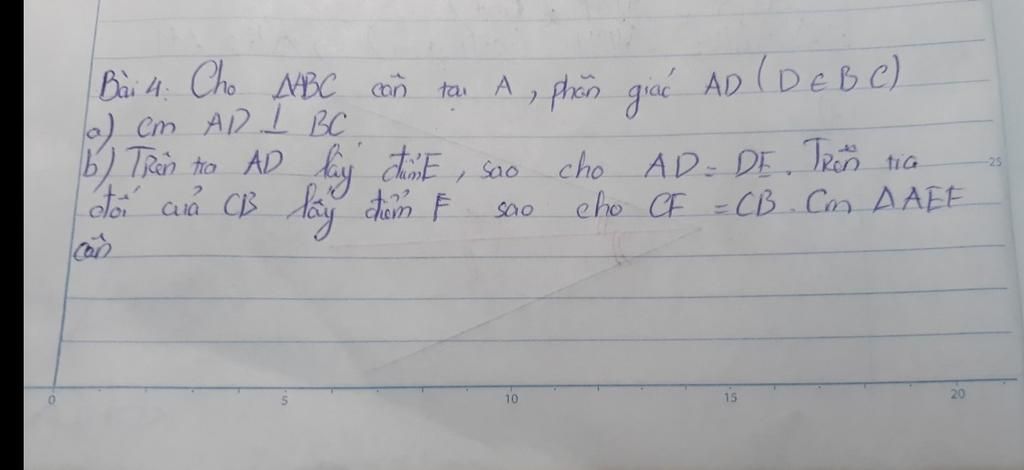 Bài 4: Cho ΔABC cân tại A, phân giác AD (D ∈ BC)
a) cm AD ⊥ BC
b) Trên tia AD lấy điểm E, sao cho AD = DE. Trên tia
đối của CB lấy điểm F sao cho CF = CB. Cm ΔAEF
cân
25
0 5 10 15 20